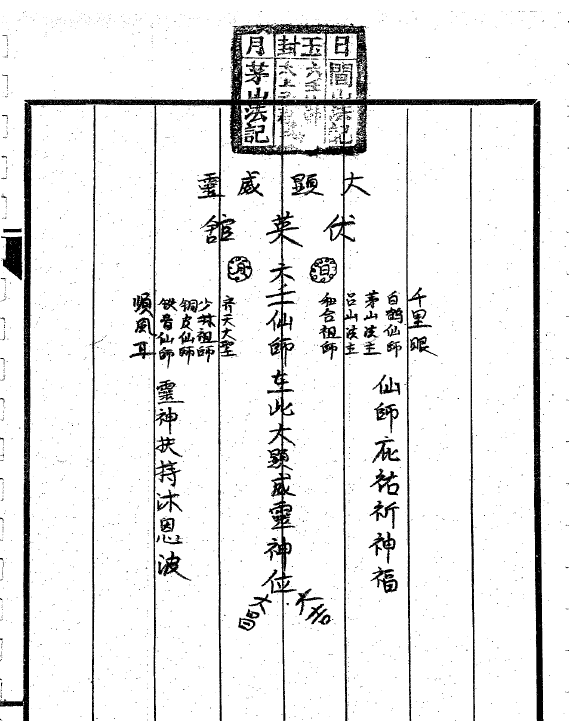 日 玉封 月
閭山法記
六壬仙師
茅山法記
大顯威靈
伏英舘
日 月
千里眼
白鶴仙師
茅山法主
吕山法主
和合祖師
六壬仙師在此大顯威靈神位
齐天大聖
少林祖師
铜皮仙師
铁骨仙師
順風耳
仙師庇祐祈神福
靈神扶持沐恩波
大吉
大昌